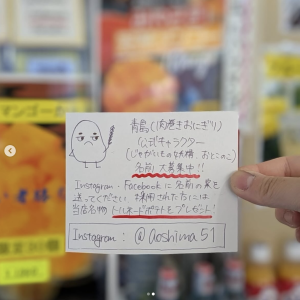 青島(肉巻きおにぎり)
公式キャラクター
(じゃがいもの妖精、おとこのこ)
名前 大募集中!!
Instagram・Facebookに名前の案を
送ってください 採用された方には
当店名物 トルネードポテトをプレゼント!
Instagram: @aoshima51
マンゴー